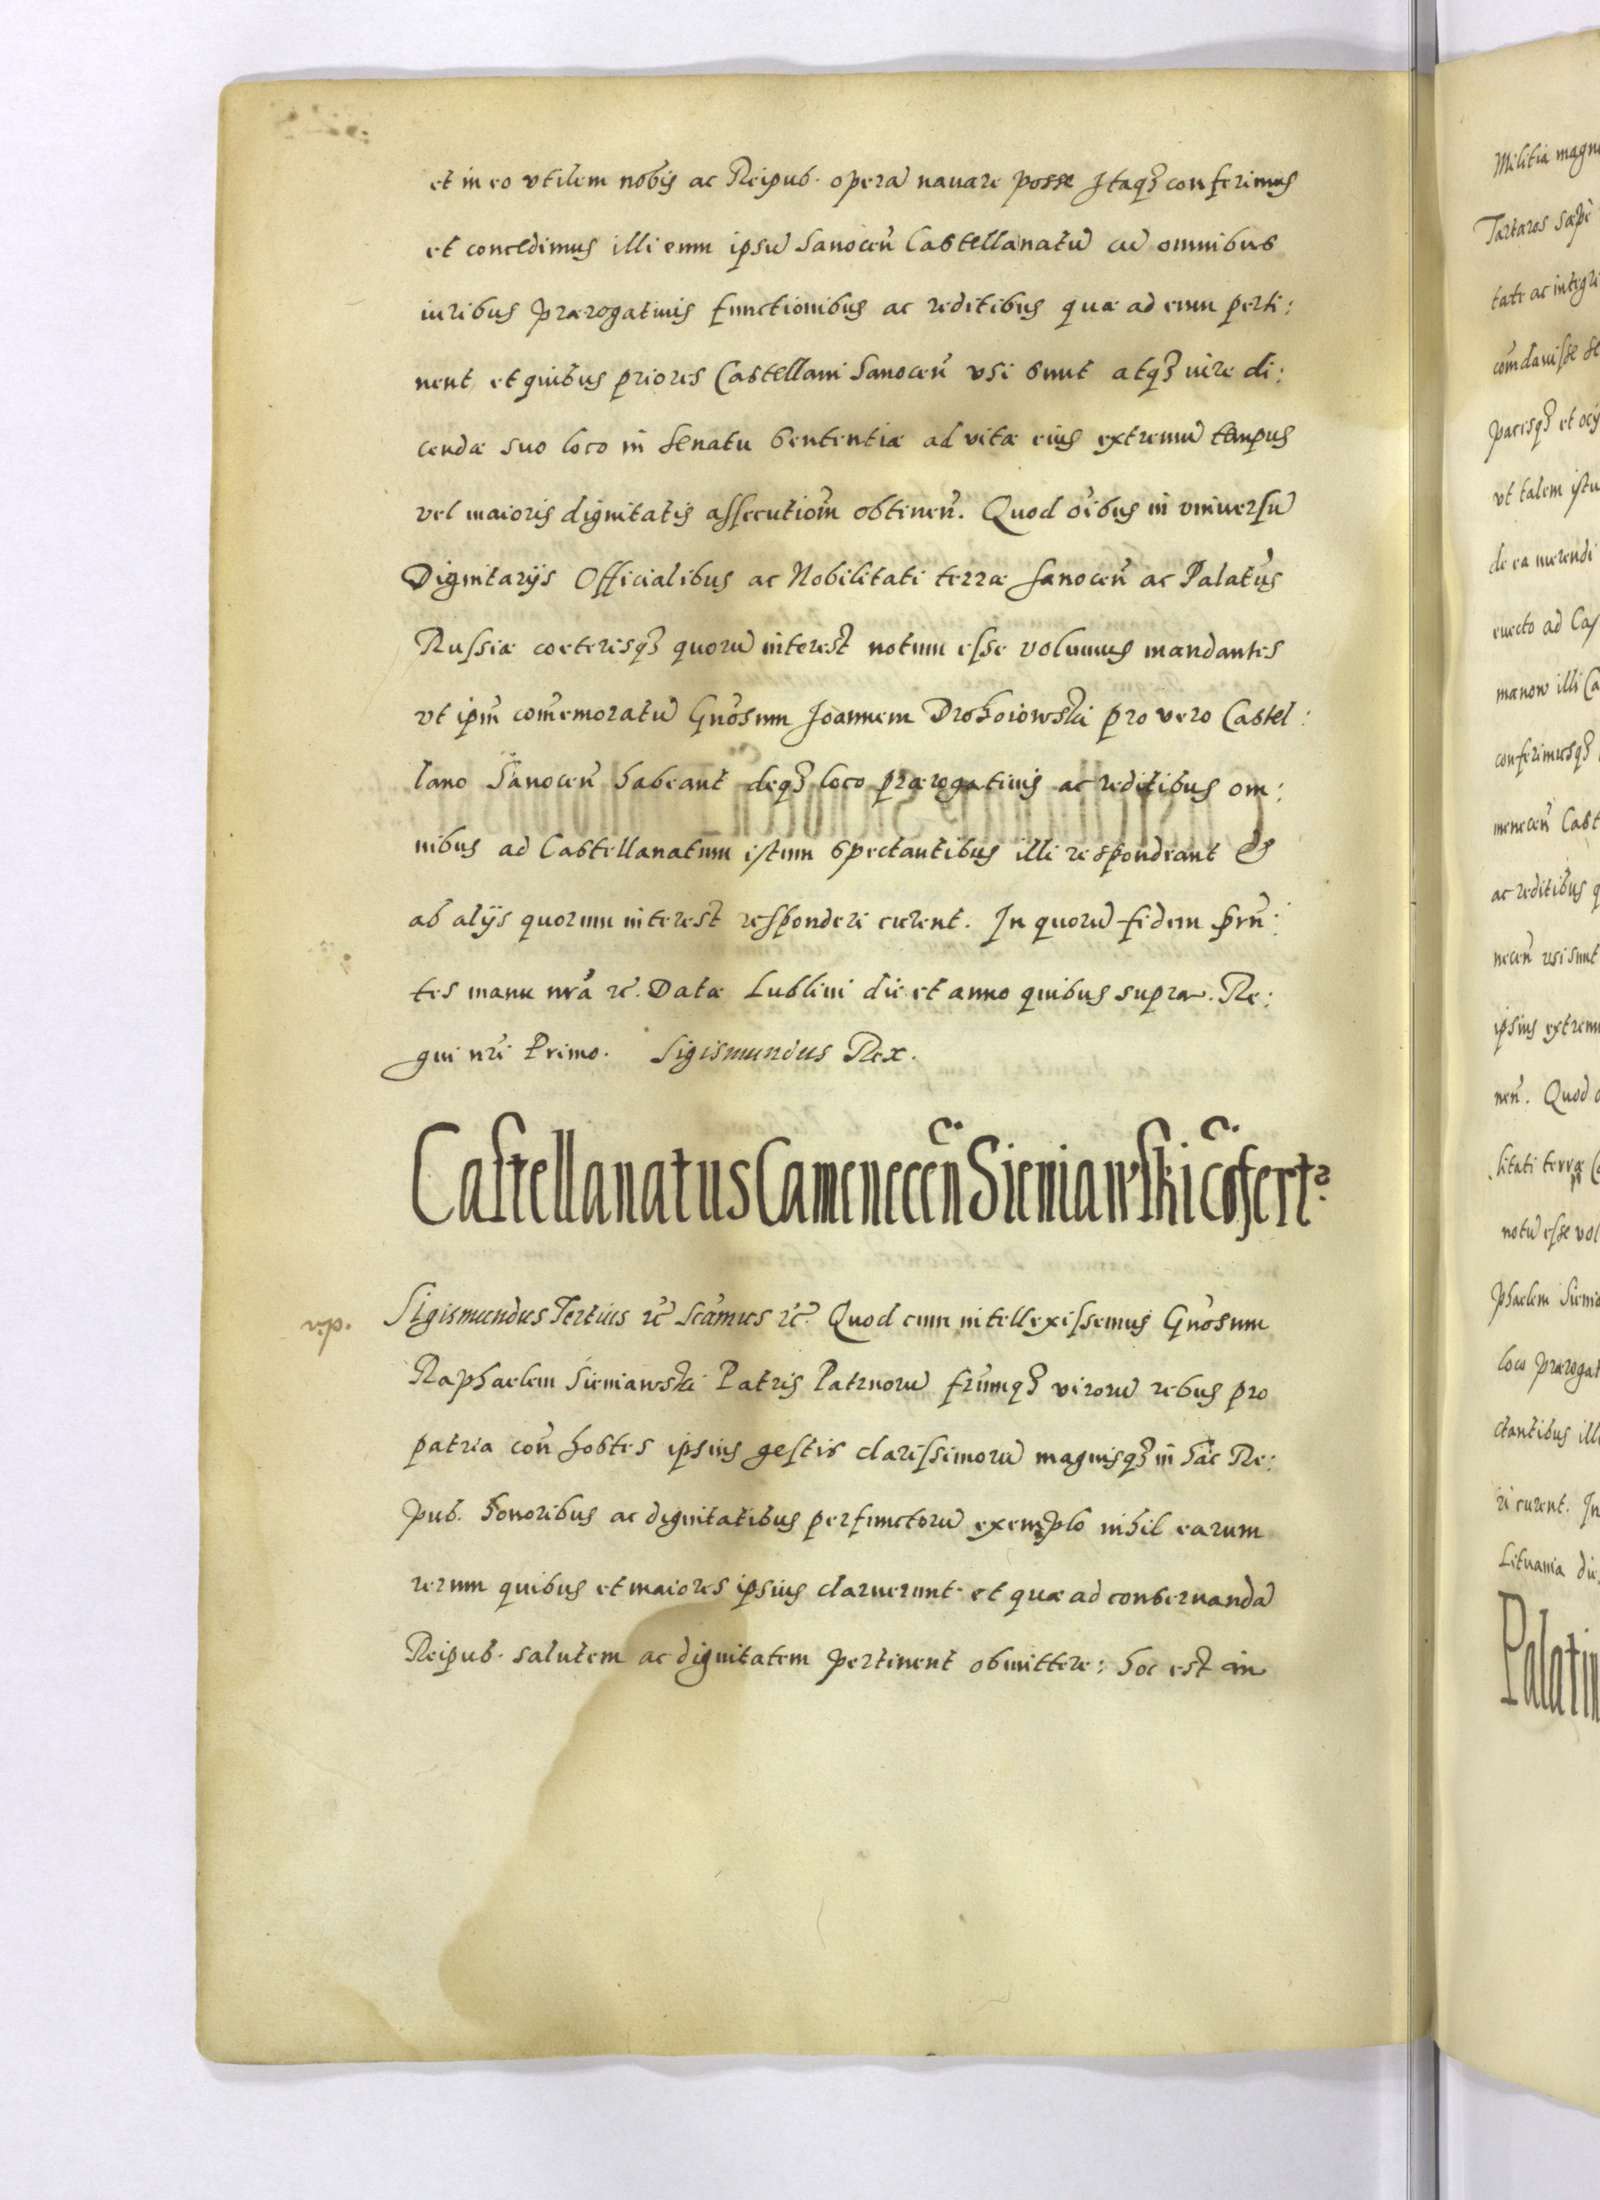 et in eo vtilem nobis ac Reipub. operã nauare posse Itaqꝫ conferimus
et concedimus illi eum ipsũ Sanoceñ Castellanatũ cũ omnibus
iuribus prærogatiuis functionibus ac reditibus quæ ad eum perti:
nent, et quibus priores Castellani Sanoceñ vsi sunt atqꝫ iure di:
cendæ suo loco in Senatu sententiæ ad vitæ eius extremũ tempus
vel maioris dignitatis assecutiom̃ obtineñ. Quod oĩbus in vniuersũ
Dignitarijs Officialibus ac Nobilitati terræ Sanoceñ ac Palatũs
Russiæ coeterisqꝫ quorũ interest notum esse volumus mandantes
vt ipm̃ com̃emoratũ Gños̃um Joannem Drohoiowski pro vero Castel:
lano Sanoceñ habeant deqꝫ loco prærogatiuis ac reditibus om:
nibus ad Castellanatum istum spectantibus illi respondeant &
ab alijs quorum interest responderi curent. In quorũ fidem prñ:
tes manu nr̃a ꝛc̃. Datæ Lublini die et anno quibus supra. Re:
gni nr̃i Primo. Sigismundus Rex.
Castellanatus Cameneceñ Sieniawski cõfert.ᵃ
v.p. Sigismundus Tertius ꝛc̃ Scãmus ꝛc̃. Quod cum intellexissemus Gños̃um
Raphaelem Sieniawski Patris Patruorũ frũmqꝫ virorũ rebus pro
patria coñ hostes ipsius gestis clarissimorũ magnisqꝫ in hac Re:
pub. honoribus ac dignitatibus perfunctorũ exemplo nihil earum
rerum quibus et maiores ipsius claruerunt et quæ ad conseruandã
Reipub. salutem ac dignitatem pertinent obmittere: hoc est in
Militia magn
Tartaros sæpe
tate ac integri
com̃dauisse se
pacisqꝫ et ocij
vt talem istu
de ea merendi
euecto ad Cas
manow illi Ca
conferimusqꝫ
meneceñ Cast
ac reditibus q
neceñ vsi sunt
ipsius extrem
neñ. Quod o
litati terræ C
notũ esse vol
phaelem Sienia
loco prærogat
ctantibus illi
ri curent. In
Lituania die
Palatin